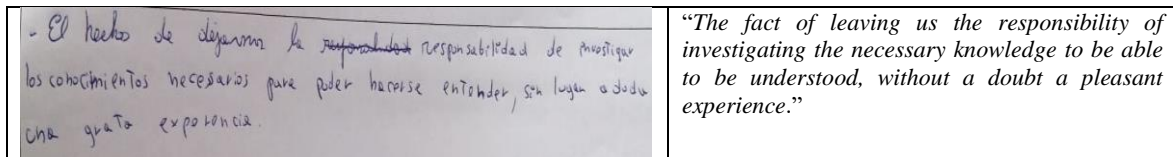 - El hecho de dejarnos la responsabilidad de investigar
los conocimientos necesarios para poder hacerse entender, sin lugar a duda
una grata experiencia.
“The fact of leaving us the responsibility of
investigating the necessary knowledge to be able
to be understood, without a doubt a pleasant
experience.”